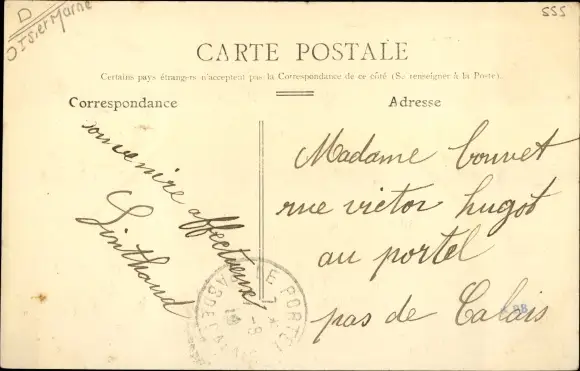 D
OIS.etMarne
555
CARTE POSTALE
Certains pays étrangers n'acceptent pas la Correspondance de ce côté (Se renseigner à la Poste).
Correspondance
Adresse
souvenire affectueux
Madame Couvet
rue victor hugot
au portel
pas de Calais
LE PORTEL